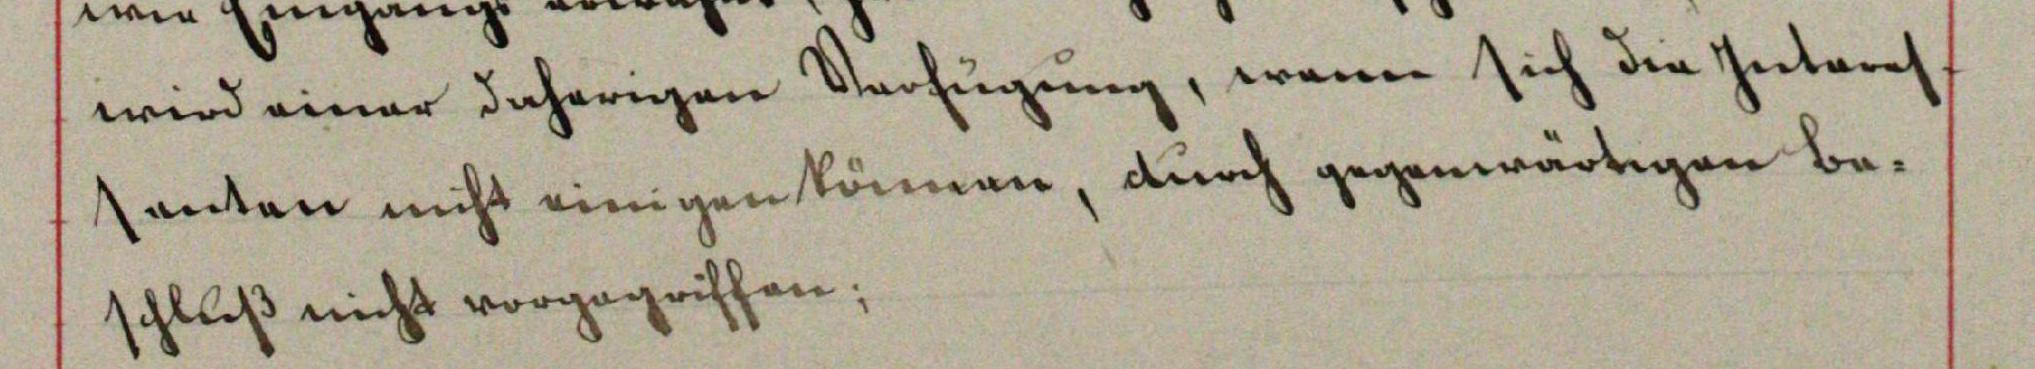 wie Eingangs erwähnt,
wird einer daherigen Verfügung, wenn sich die Interes-
senten nicht einigen können, durch gegenwärtigen Be=
schluß nicht vorgegriffen;